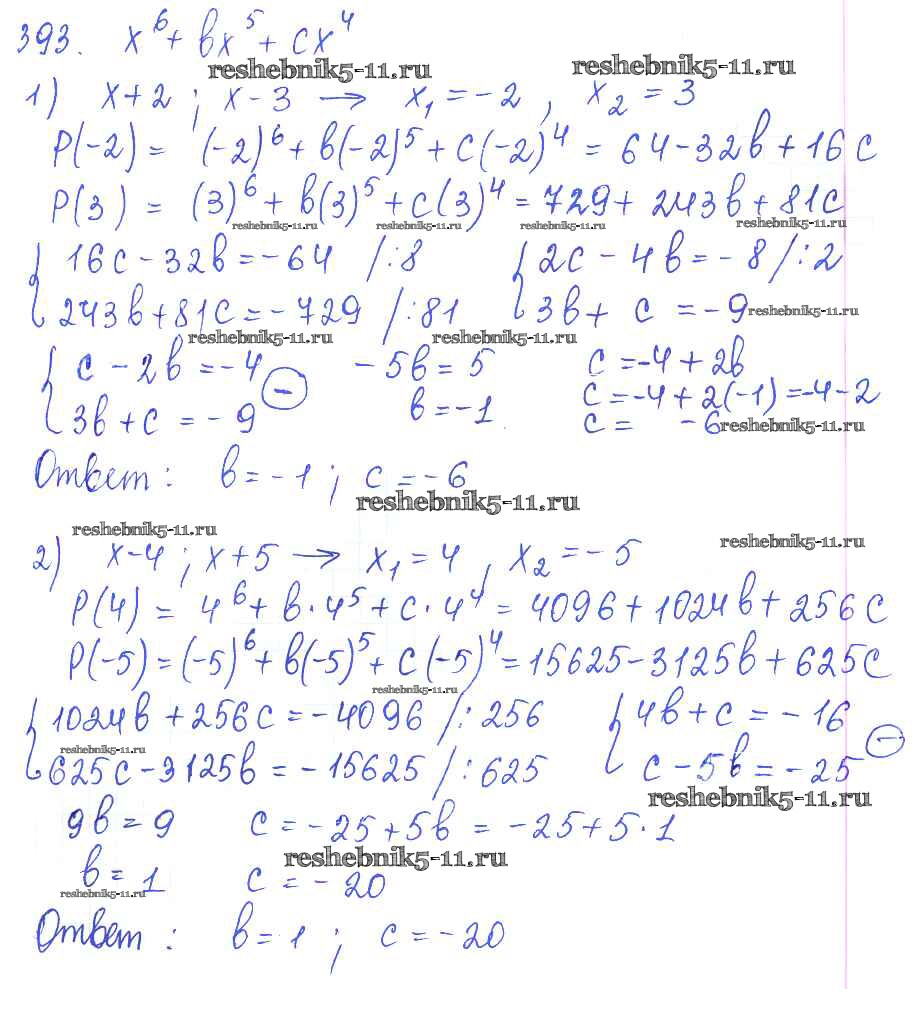 393. x⁶ + bx⁵ + cx⁴
reshebnik5-11.ru reshebnik5-11.ru
1) x+2 ; x-3 → x₁ = -2 , x₂ = 3
P(-2) = (-2)⁶ + b(-2)⁵ + c(-2)⁴ = 64 - 32b + 16c
P(3) = (3)⁶ + b(3)⁵ + c(3)⁴ = 729 + 243b + 81c
reshebnik5-11.ru reshebnik5-11.ru reshebnik5-11.ru reshebnik5-11.ru
{ 16c - 32b = -64 /:8 { 2c - 4b = -8 /:2
243b + 81c = -729 /:81 3b + c = -9 reshebnik5-11.ru
reshebnik5-11.ru reshebnik5-11.ru
{ c - 2b = -4 ⊖ -5b = 5 c = -4 + 2b
3b + c = -9 b = -1 c = -4 + 2(-1) = -4 - 2
c = -6 reshebnik5-11.ru
Ответ: b = -1 ; c = -6
reshebnik5-11.ru
reshebnik5-11.ru reshebnik5-11.ru
2) x-4 ; x+5 → x₁ = 4 , x₂ = -5
P(4) = 4⁶ + b·4⁵ + c·4⁴ = 4096 + 1024b + 256c
P(-5) = (-5)⁶ + b(-5)⁵ + c(-5)⁴ = 15625 - 3125b + 625c
reshebnik5-11.ru
{ 1024b + 256c = -4096 /:256 { 4b + c = -16 ⊖
reshebnik5-11.ru
625c - 3125b = -15625 /:625 c - 5b = -25
reshebnik5-11.ru
9b = 9 c = -25 + 5b = -25 + 5·1
reshebnik5-11.ru
b = 1 c = -20
reshebnik5-11.ru
Ответ: b = 1 ; c = -20